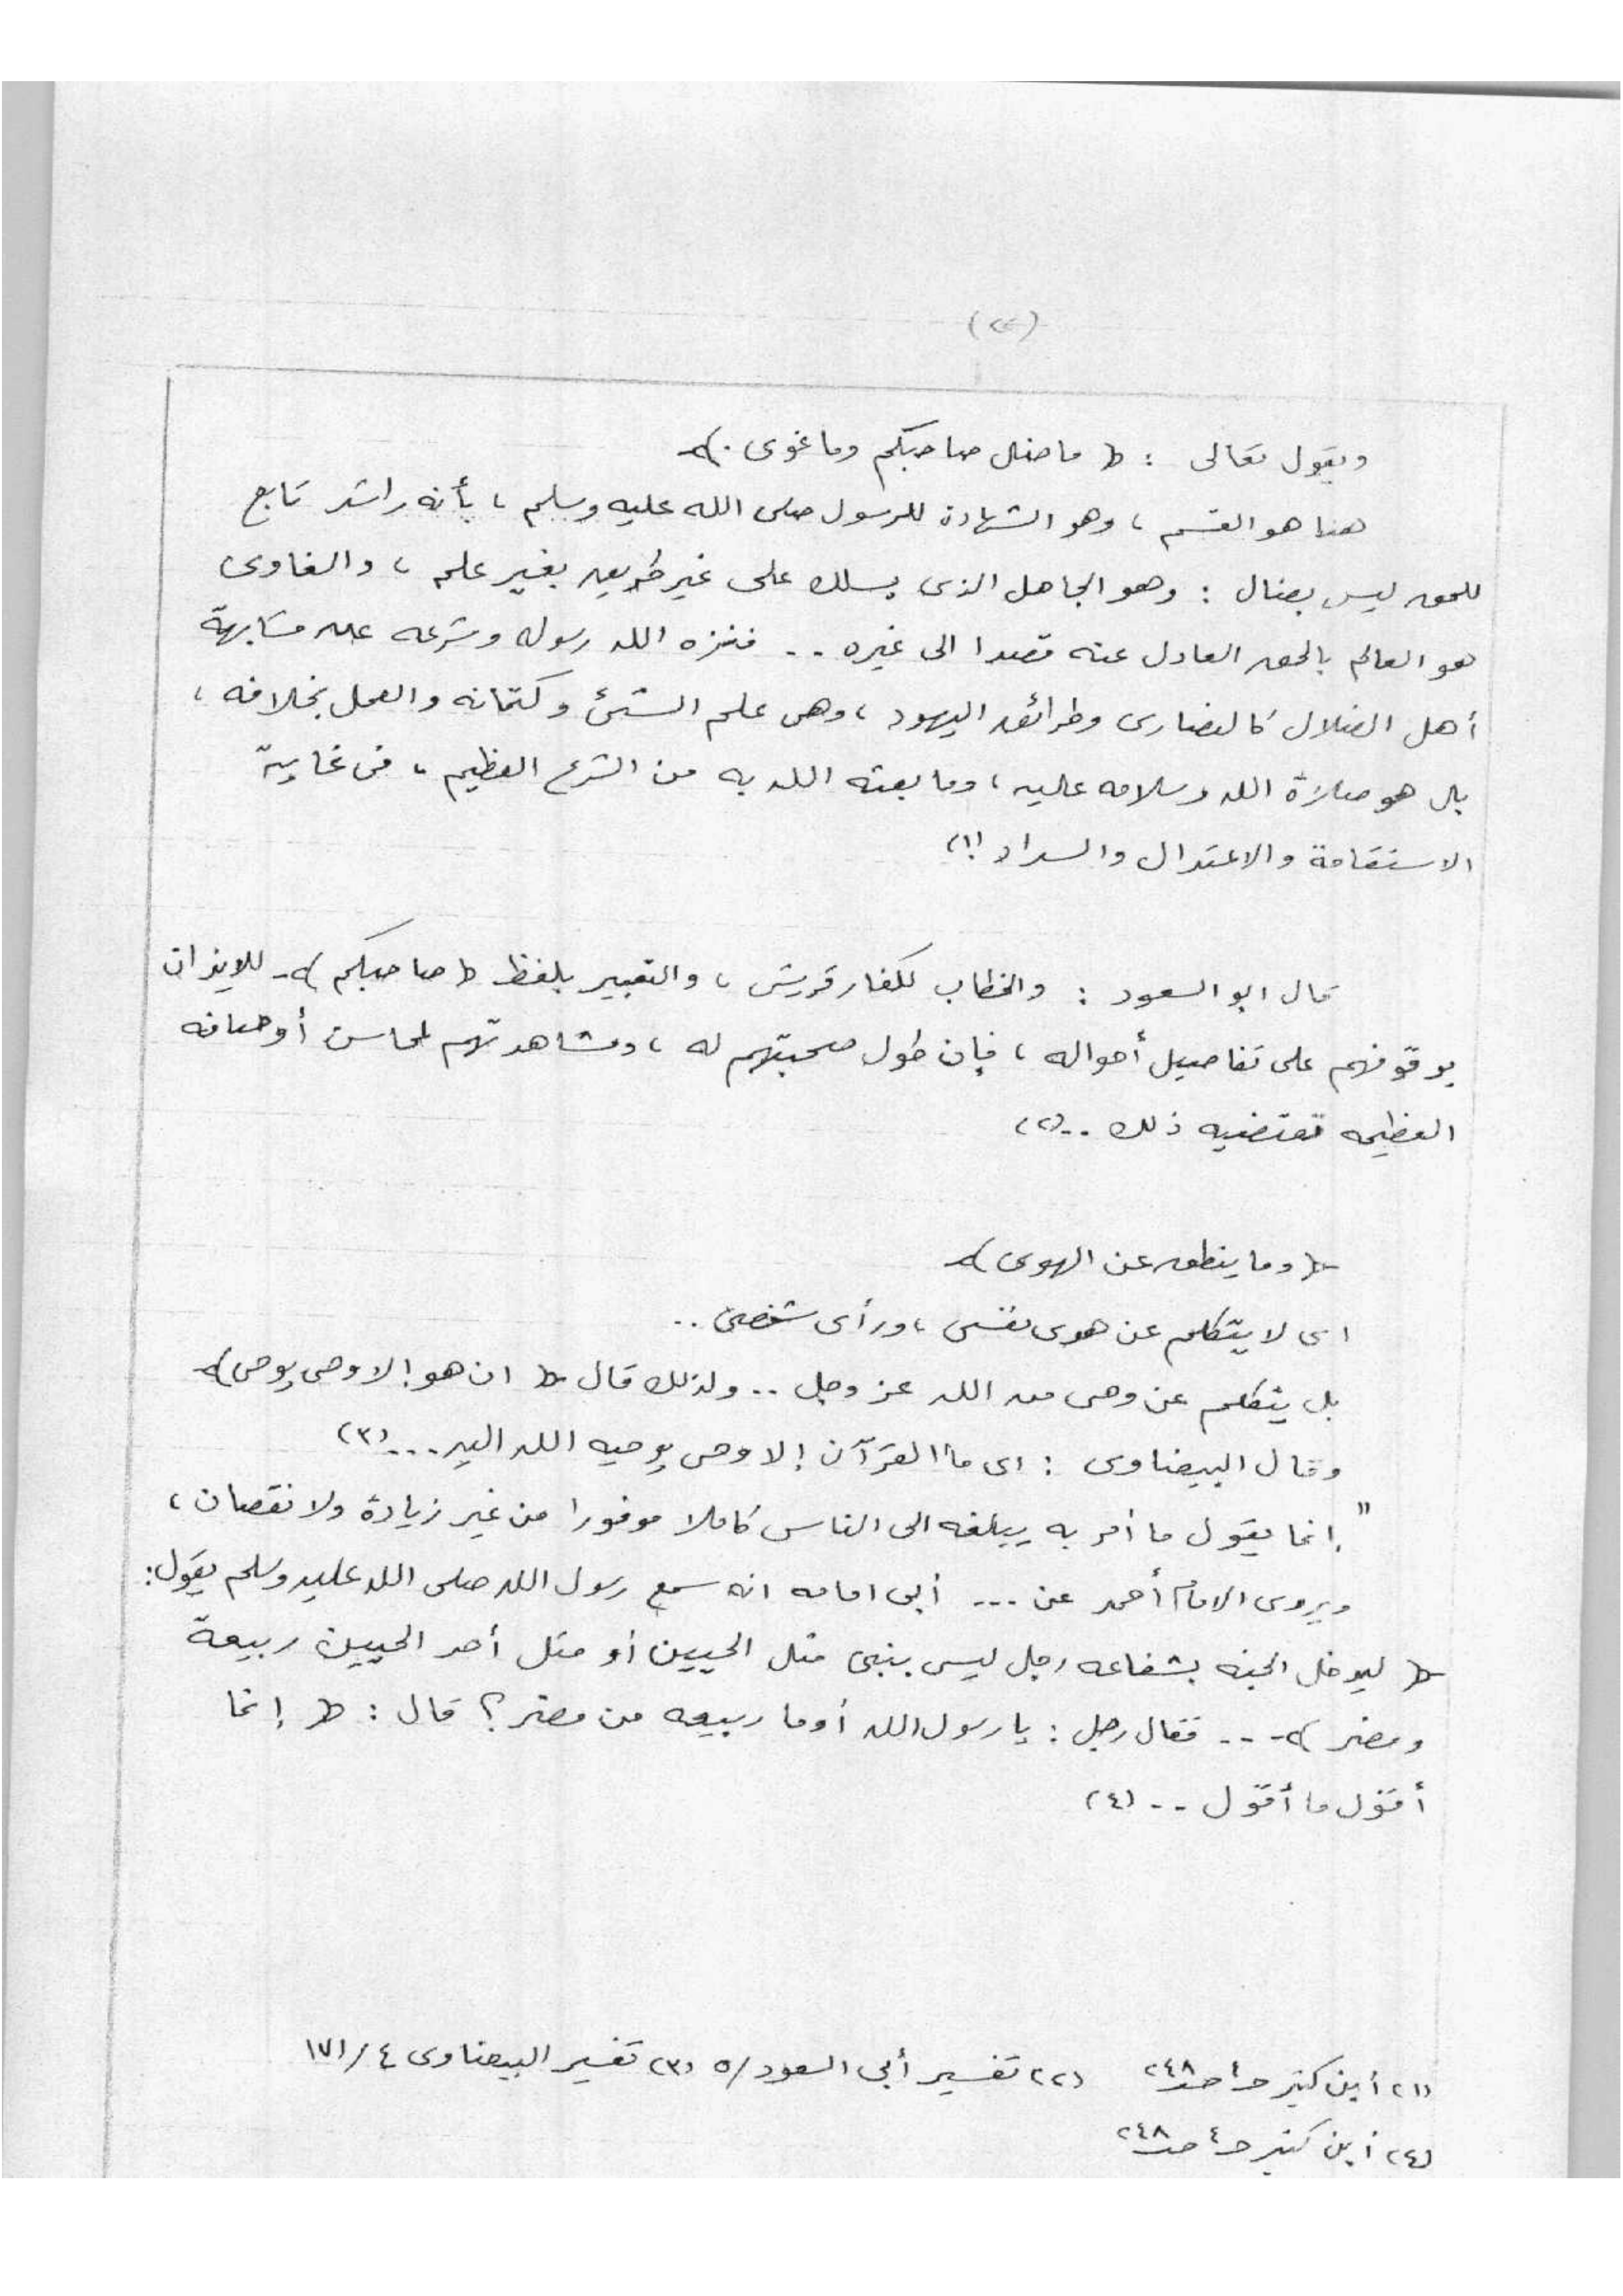 ويقول تعالى : ﴿ ما ضل صاحبكم وما غوى . ﴾
هذا هو القسم ، وهو الشهادة للرسول صلى الله عليه وسلم ، بأنه راشد تابع
للحق ليس بضال : وهو الجاهل الذى يسلك على غير طريق بغير علم ، والغاوى
هو العالم بالحق العادل عنه قصدا الى غيره .. فنزه الله رسوله وشرعه عن مشابهة
أهل الضلال كالنصارى وطرائق اليهود ، وهى علم الشئ وكتمانه والعمل بخلافه ،
بل هو صلاة الله وسلامه عليه ، وما بعثه الله به من الشرع العظيم ، فى غاية
الاستقامة والاعتدال والسداد (١)
قال ابو السعود : والخطاب لكفار قريش ، والتعبير بلفظ ﴿ صاحبكم ﴾ للايذان
بوقوفهم على تفاصيل أحواله ، فإن طول صحبتهم له ، ومشاهدتهم لمحاسن أوصافه
العظيمه تقتضيه ذلك .. (٢)
﴿ وما ينطق عن الهوى ﴾
اى لا يتكلم عن هوى نفسى ، ورأى شخصى ..
بل يتكلم عن وحى من الله عز وجل .. ولذلك قال ﴿ ان هو إلا وحى يوحى ﴾
وقال البيضاوى : اى ما القرآن إلا وحى يوحيه الله اليه ... (٣)
" إنما يقول ما أمر به يبلغه الى الناس كاملا موفورا من غير زيادة ولا نقصان ،
ويروى الامام أحمد عن ... أبى امامه انه سمع رسول الله صلى الله عليه وسلم يقول :
﴿ ليدخل الجنه بشفاعه رجل ليس بنبى مثل الحيين أو مثل أحد الحيين ربيعة
ومضر ﴾ ... فقال رجل : يا رسول الله أوما ربيعه من مضر ؟ قال : ﴿ إنما
أقول ما أقول .. (٤)
(١) أبن كثير حـ٤ صـ٢٤٨ (٢) تفسير أبى السعود /٥ (٣) تفسير البيضاوى ٤/١٧١
(٤) أبن كثير حـ٤ صـ٢٤٨